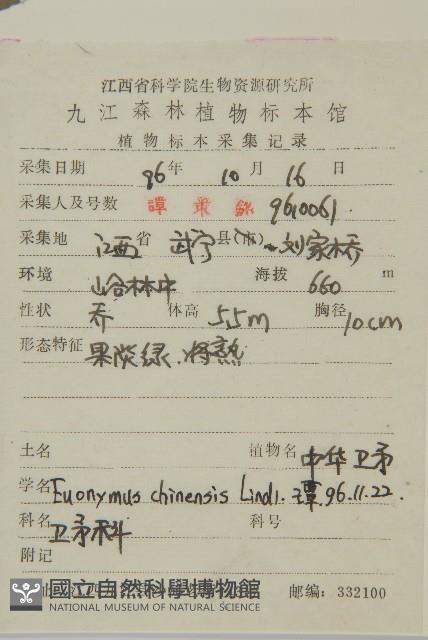 江西省科学院生物资源研究所
九江森林植物标本馆
植物标本采集记录
采集日期 96年 10月 16日
采集人及号数 譚策铭 9610061
采集地 江西省 武宁县(市) 刘家桥
环境 山谷林中 海拔 660 m
性状 乔 体高 5.5m 胸径 10cm
形态特征 果淡绿.将熟
土名 植物名 中华卫矛
学名 Euonymus chinensis Lindl. 谭.96.11.22.
科名 卫矛科 科号
附记
國立自然科學博物館 邮编: 332100
NATIONAL MUSEUM OF NATURAL SCIENCE